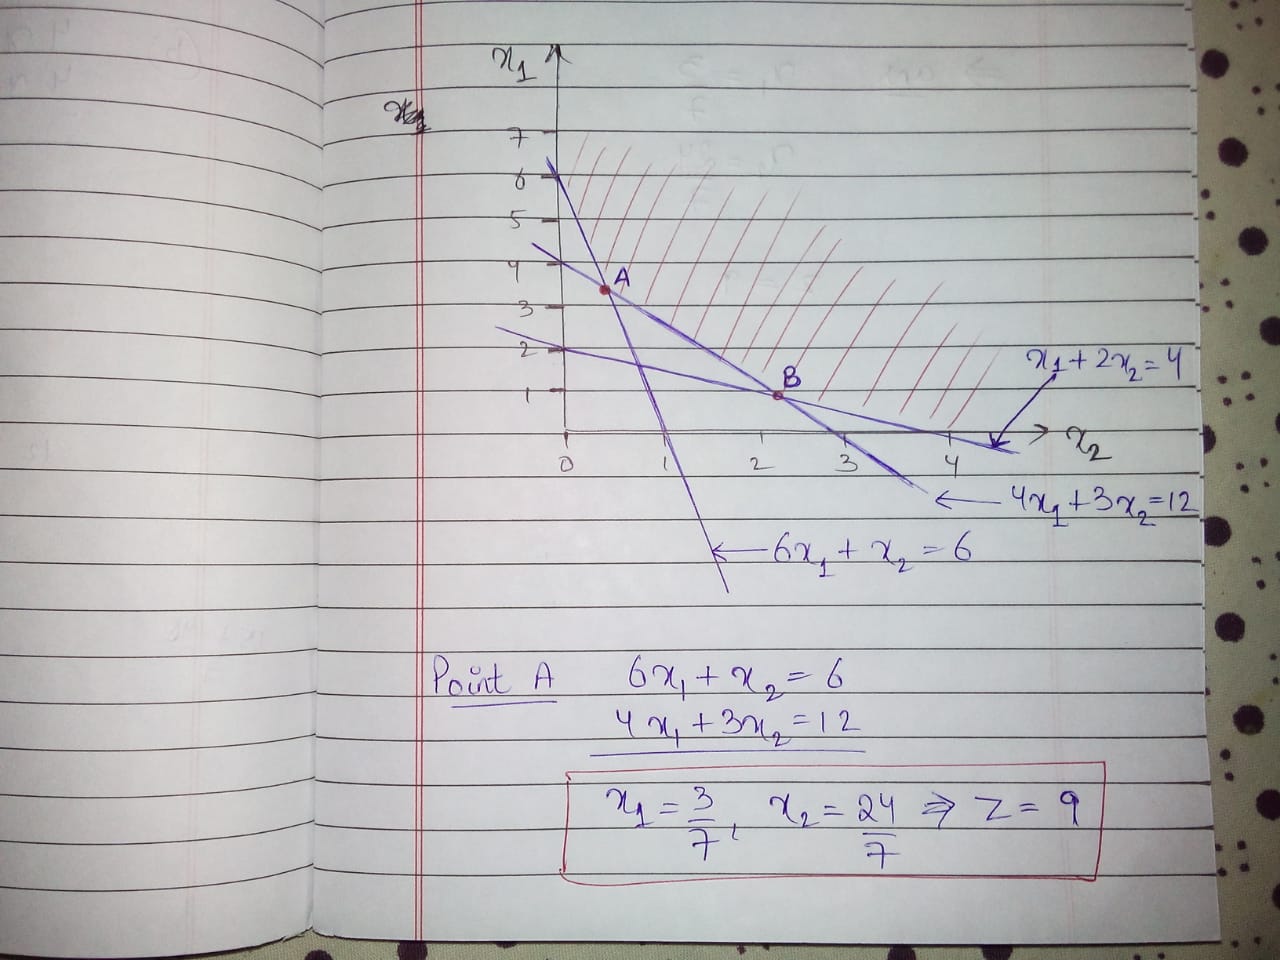 x₁
7
6
5
4
3
2
1
A
B
x₁ + 2x₂ = 4
x₂
0 1 2 3 4
4x₁ + 3x₂ = 12
6x₁ + x₂ = 6
Point A 6x₁ + x₂ = 6
4x₁ + 3x₂ = 12
x₁ = 3/7, x₂ = 24/7 ⇒ Z = 9